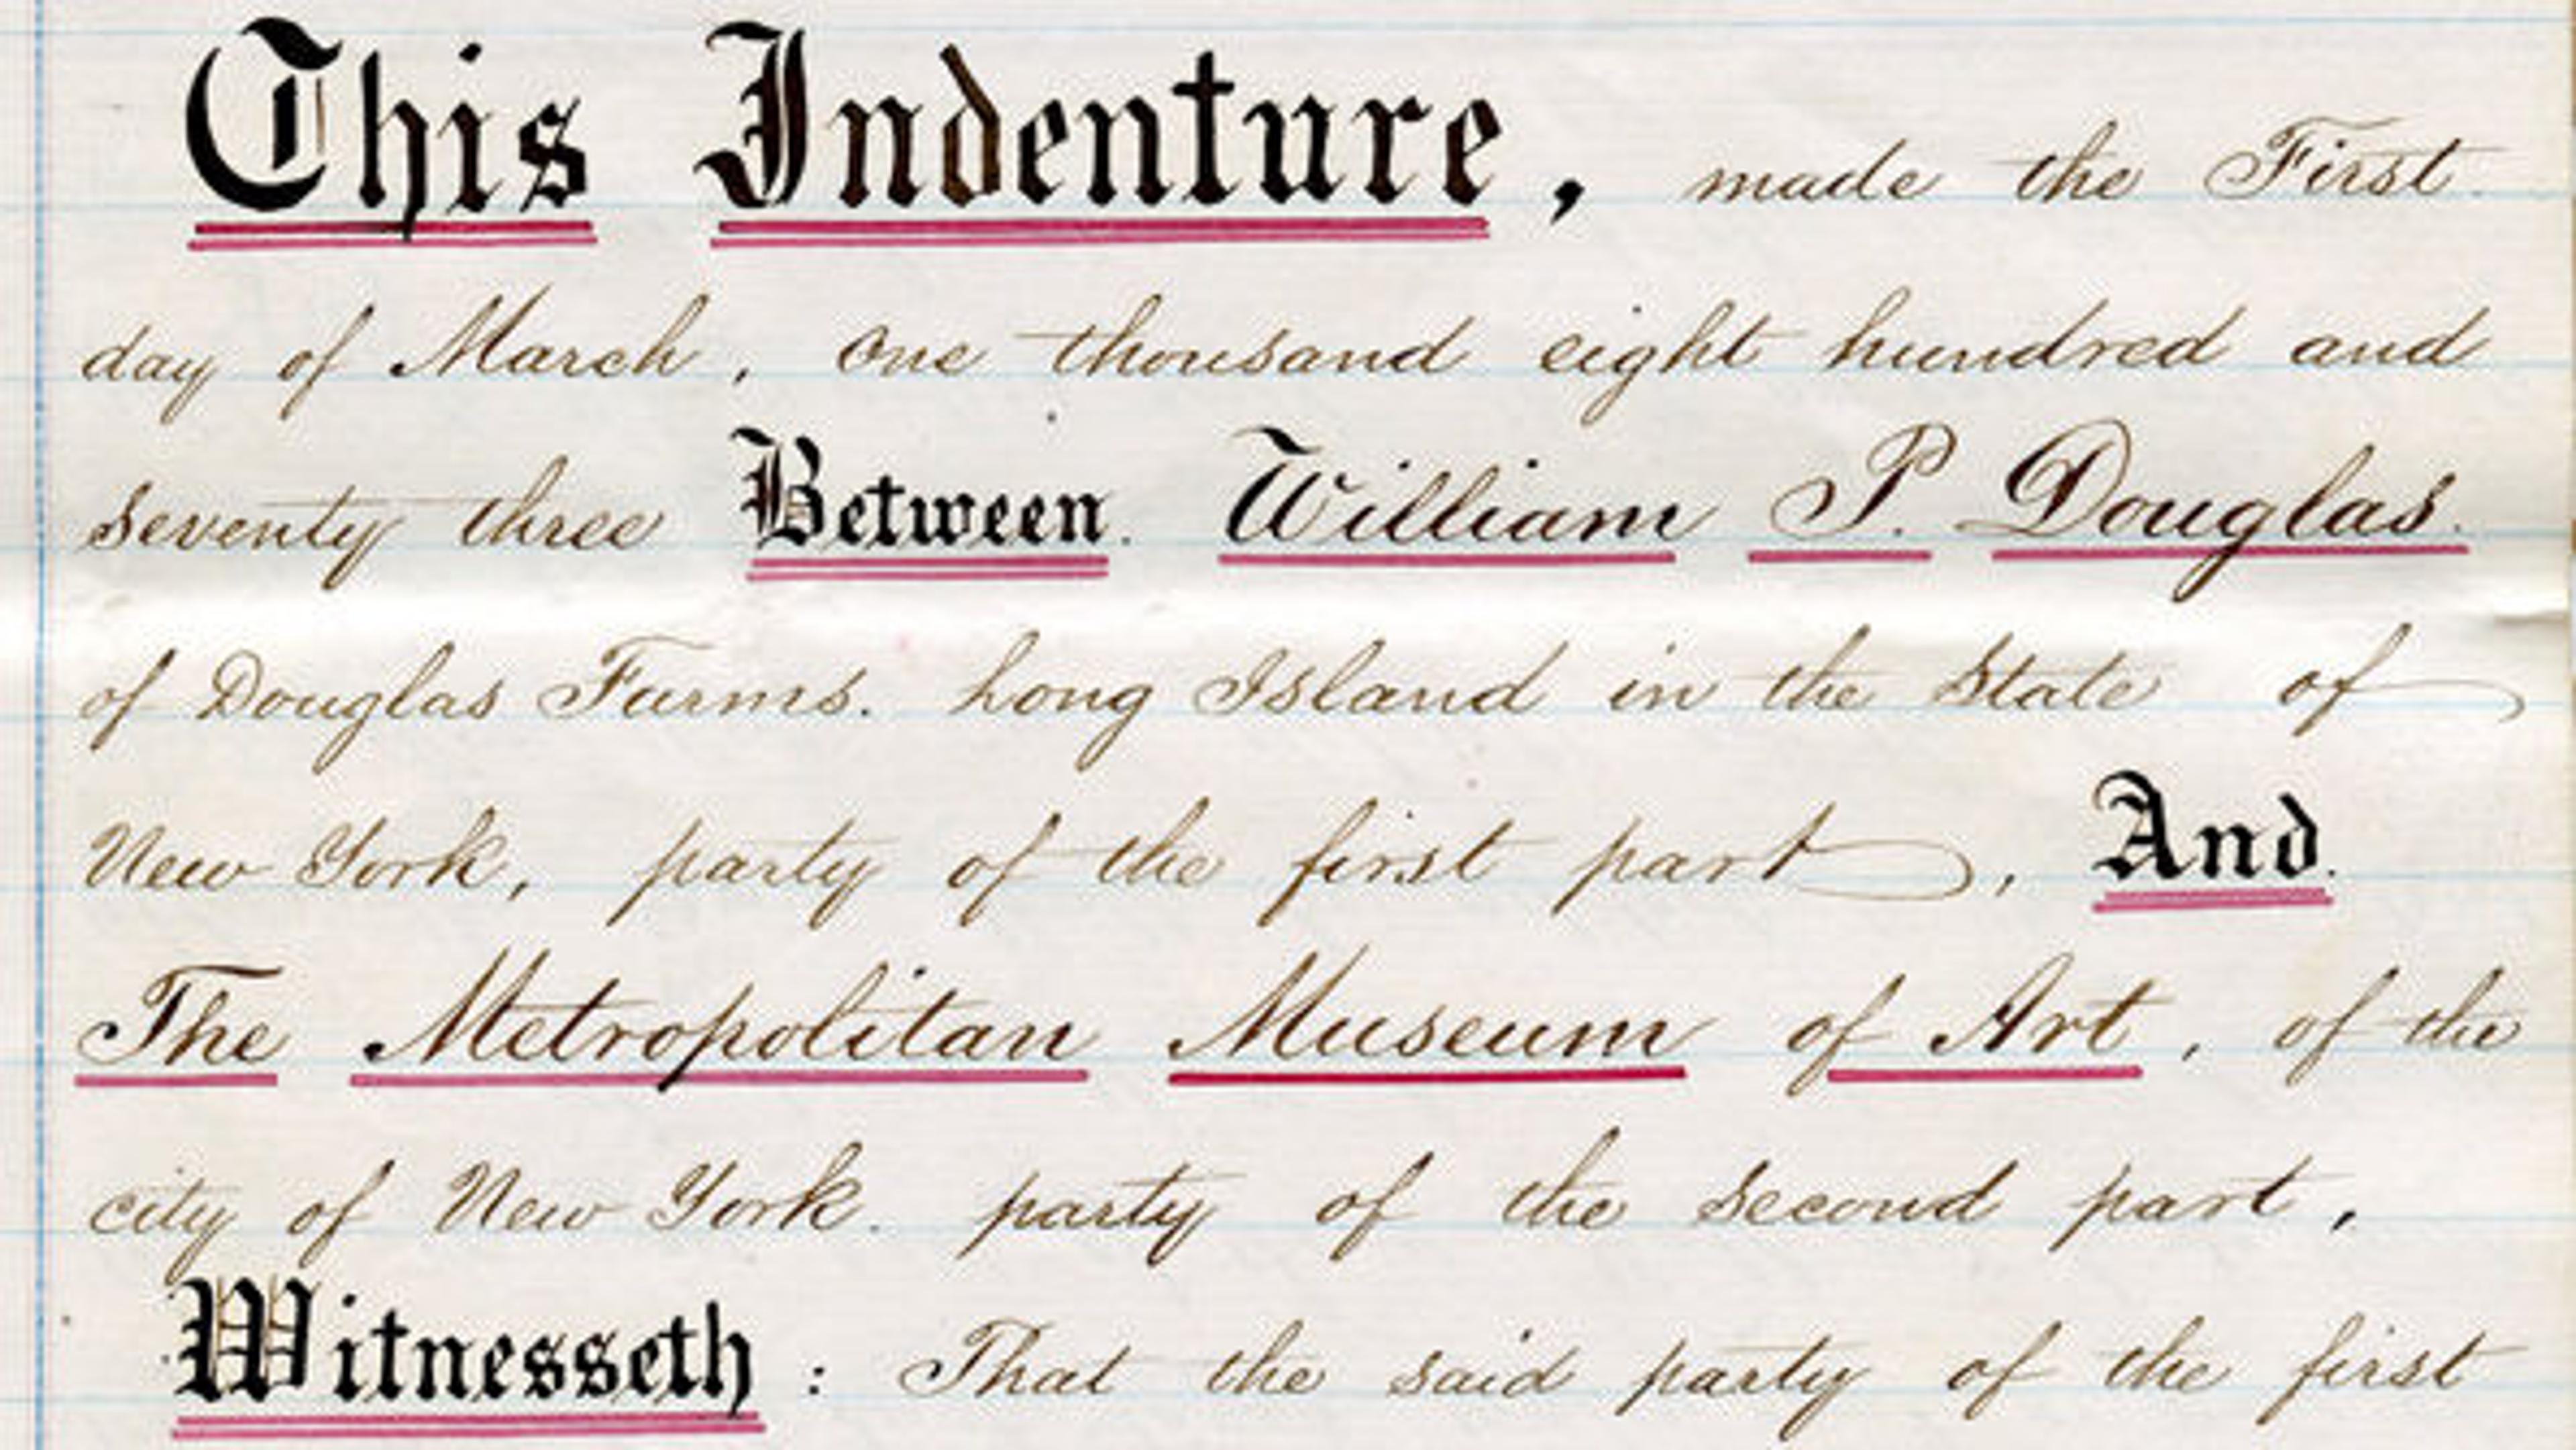 This Indenture, made the First
day of March, one thousand eight hundred and
seventy three Between. William P. Douglas.
of Douglas Farms. Long Island in the State of
New York, party of the first part, And.
The Metropolitan Museum of Art, of the
city of New York. party of the second part,
Witnesseth : That the said party of the first